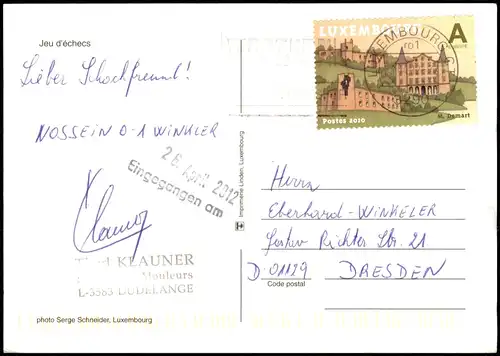 Jeu d'échecs
Lieber Schachfreund!
NOSSEIN 0-1 WINKLER
26. April 2012
Eingegangen am
KLAUNER
Mouleurs
L-3383 DUDELANGE
photo Serge Schneider, Luxembourg
Imprimerie Linden, Luxembourg
LUXEMBOURG
A
Postes 2010
M. Demart
LUXEMBOURG
Herrn
Eberhard-WINKELER
Gustav Richter Str. 21
D-01129 DRESDEN
Code postal